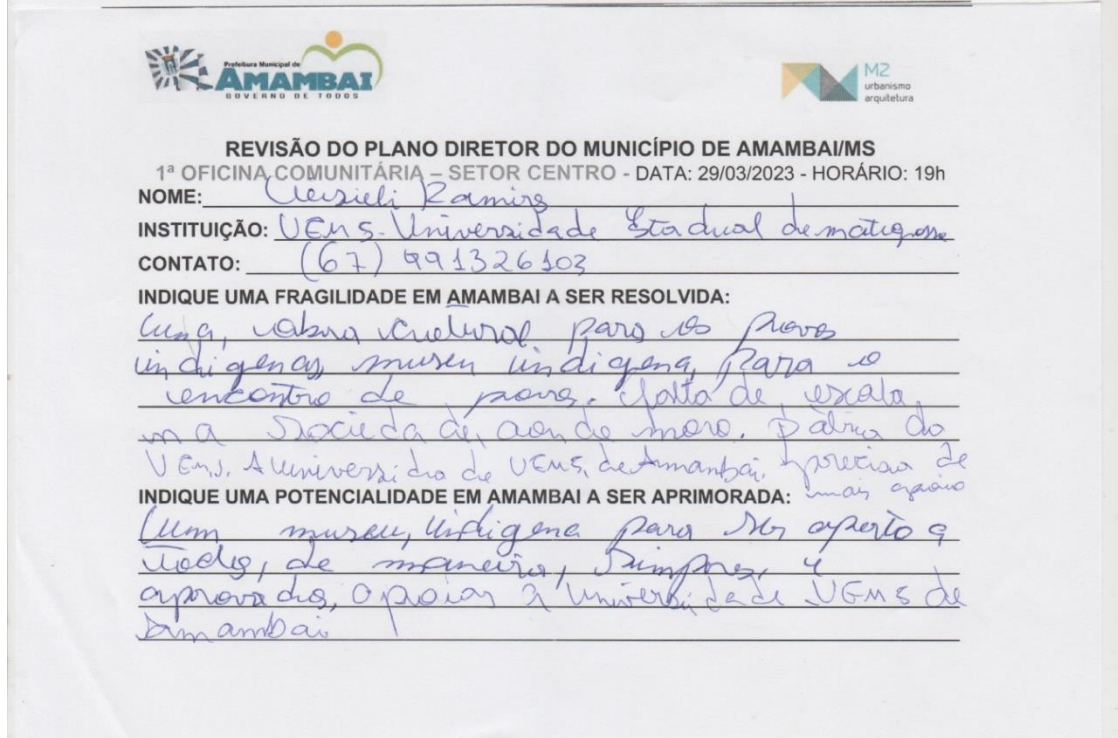 Prefeitura Municipal de
AMAMBAI
GOVERNO DE TODOS
M2
urbanismo
arquitetura
REVISÃO DO PLANO DIRETOR DO MUNICÍPIO DE AMAMBAI/MS
1ª OFICINA COMUNITÁRIA – SETOR CENTRO - DATA: 29/03/2023 - HORÁRIO: 19h
NOME: Cleizieli Ramires
INSTITUIÇÃO: UEMS - Universidade Estadual de
CONTATO: (67) 991326103
INDIQUE UMA FRAGILIDADE EM AMAMBAI A SER RESOLVIDA:
cultural para os povos
indigenas, museu indigena, para o
encontro de povos. falta de
na Sociedade, aonde moro.
UEMS. A UEMS, de Amambai. precisa de
mais apoio
INDIQUE UMA POTENCIALIDADE EM AMAMBAI A SER APRIMORADA:
Um museu, indigena para ser aperto a
todos, de maneira, simpres, e
aprovados, apoiar a Universidade UEMS de
Amambai